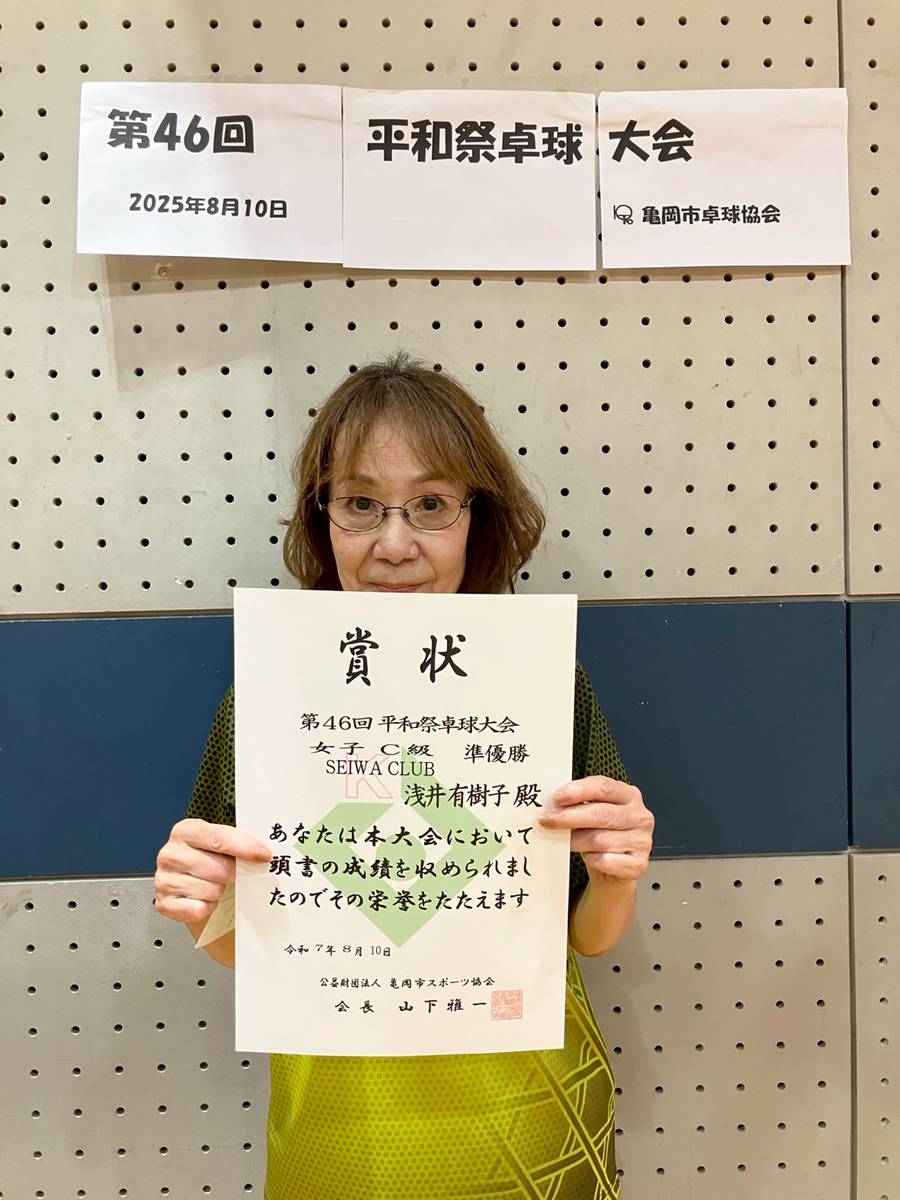 第46回 平和祭卓球大会
2025年8月10日
亀岡市卓球協会
賞状
第46回 平和祭卓球大会
女子 C級 準優勝
SEIWA CLUB
浅井有樹子 殿
あなたは本大会において
頭書の成績を収められまし
たのでその栄誉をたたえます
令和7年8月10日
公益財団法人 亀岡市スポーツ協会
会長 山下雅一